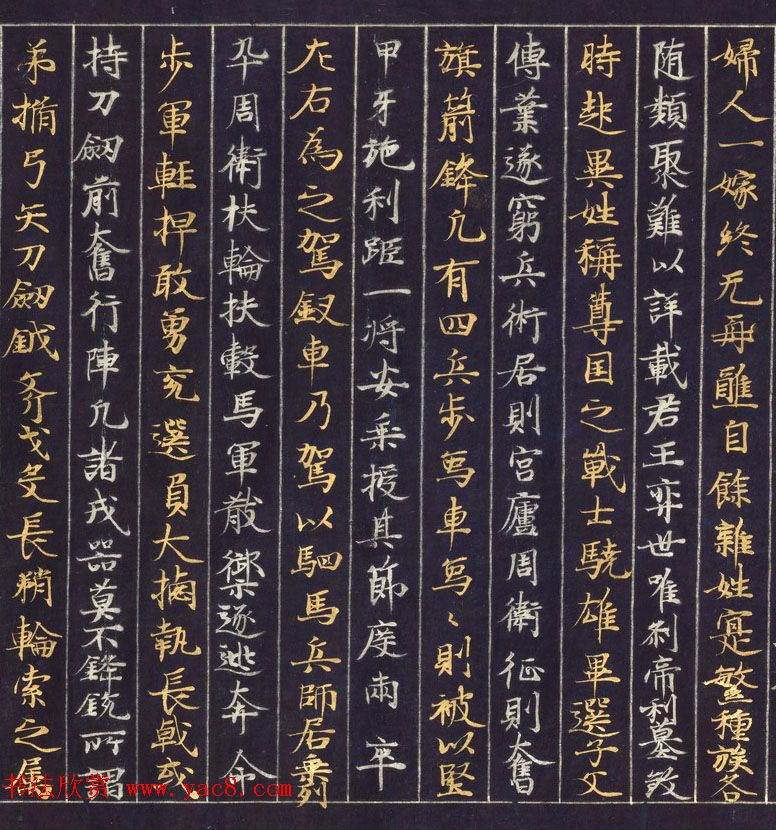 婦人一嫁終无再醮自餘雜姓寔繁種族各
随類聚難以詳載君王弈世唯刹帝利
時起異姓稱尊国之戰士驍雄畢選子父
傳業遂窮兵術居則宮廬周衛征則奮
旗前鋒凡有四兵步馬車象〻則被以堅
甲牙施利距一將安乘授其節度兩卒
左右為之駕馭車乃駕以駟馬兵師居乘列
卒周衛扶輪扶轂馬軍散禦逐逃奔命
步軍軽捍敢勇充選負大樐執長戟或
持刀劔前奮行陣凡諸戎器莫不鋒銳所謂
矛楯弓矢刀劔鉞斧戈殳長矟輪索之属
书法欣赏 www.yac8.com